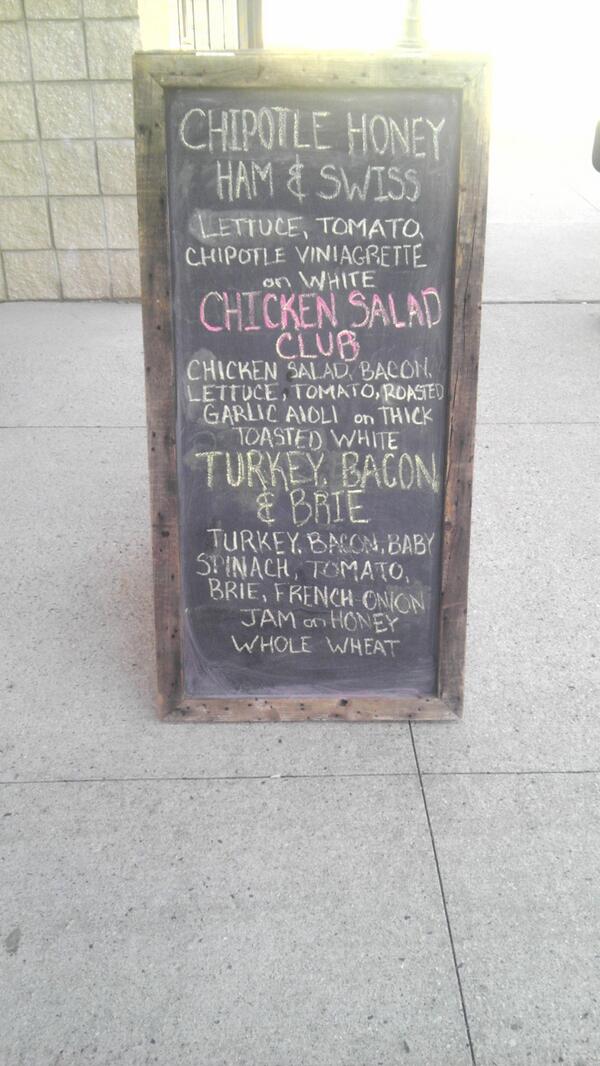 CHIPOTLE HONEY
HAM & SWISS
LETTUCE, TOMATO,
CHIPOTLE VINIAGRETTE
on WHITE
CHICKEN SALAD
CLUB
CHICKEN SALAD, BACON,
LETTUCE, TOMATO, ROASTED
GARLIC AIOLI on THICK
TOASTED WHITE
TURKEY, BACON
& BRIE
TURKEY, BACON, BABY
SPINACH, TOMATO,
BRIE, FRENCH-ONION
JAM on HONEY
WHOLE WHEAT